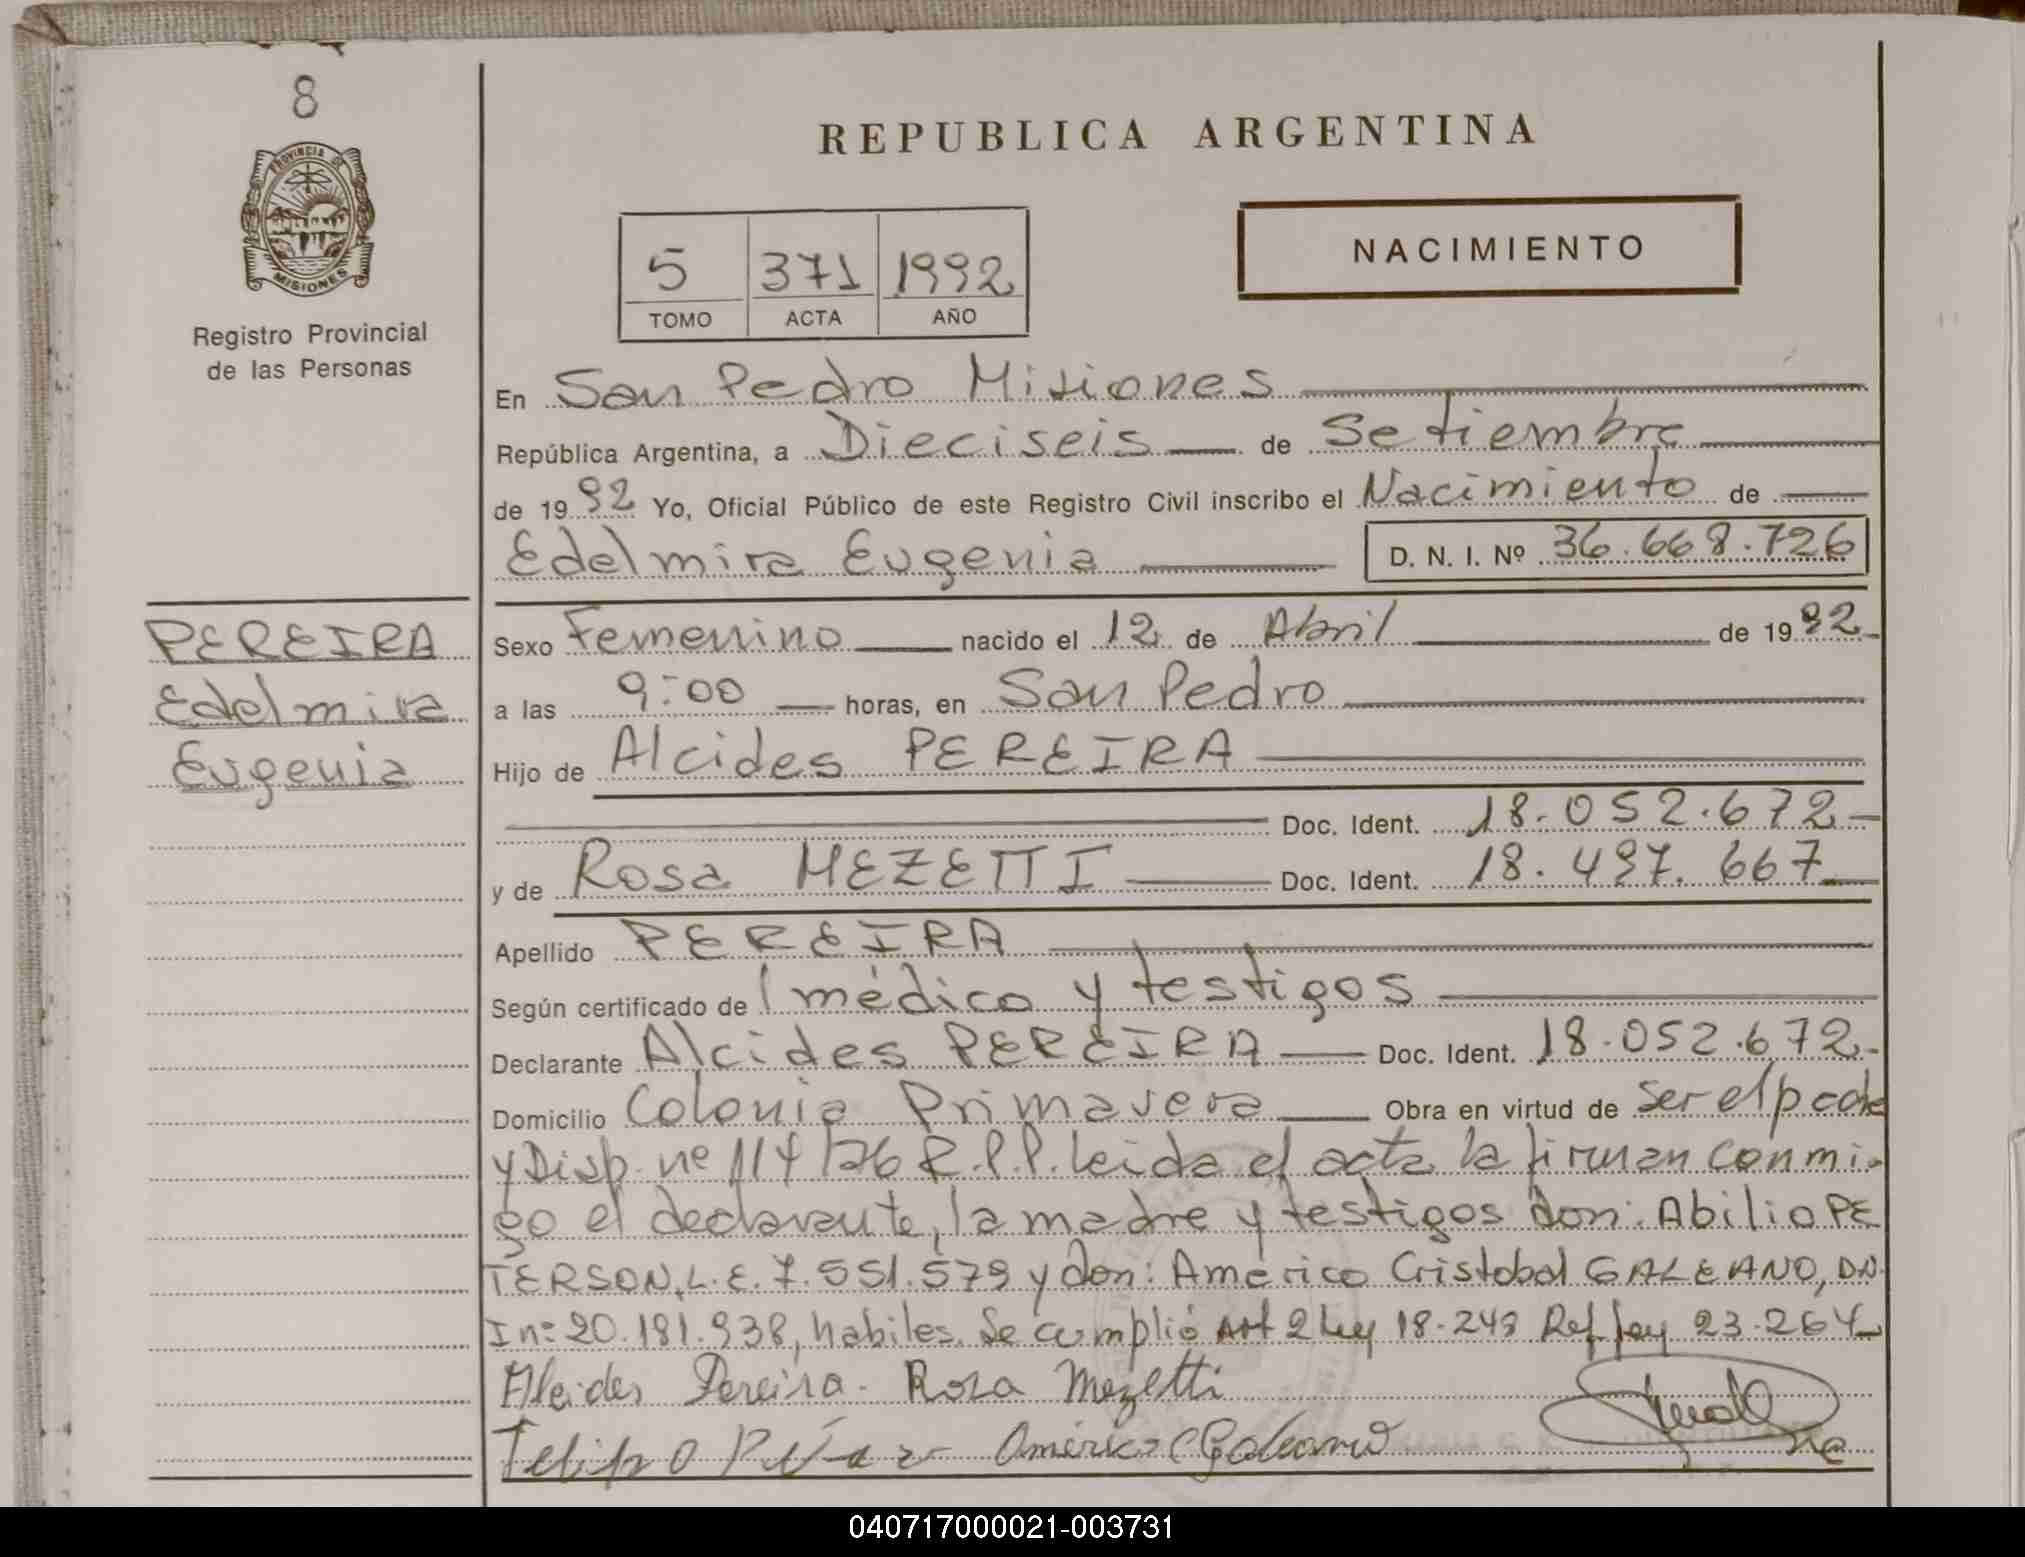 8
PROVINCIA DE
MISIONES
Registro Provincial
de las Personas
REPUBLICA ARGENTINA
5 371 1992
TOMO ACTA AÑO
NACIMIENTO
En San Pedro Misiones
República Argentina, a Dieciseis de Setiembre
de 1992 Yo, Oficial Público de este Registro Civil inscribo el Nacimiento de
Edelmira Eugenia D. N. I. Nº 36.668.726
PEREIRA
Edelmira
Eugenia
Sexo Femenino nacido el 12 de Abril de 1992
a las 9:00 horas, en San Pedro
Hijo de Alcides PEREIRA
Doc. Ident. 18.052.672
y de Rosa MEZETTI Doc. Ident. 18.497.667
Apellido PEREIRA
Según certificado del médico y testigos
Declarante Alcides PEREIRA Doc. Ident. 18.052.672
Domicilio Colonia Primavera Obra en virtud de ser el padre
y Disp. nº 114/76 R.P.P. leida el acta la firman conmi-
go el declarante, la madre y testigos don: Abilio PE
TERSON, L.E. 7.551.579 y don: Américo Cristobal GALEANO, DN
I nº 20.181.938, habiles. Se cumplió Art 2 Ley 18.248 Ref. Ley 23.264
Alcides Pereira. Rosa Mezetti
Américo C Galeano
040717000021-003731